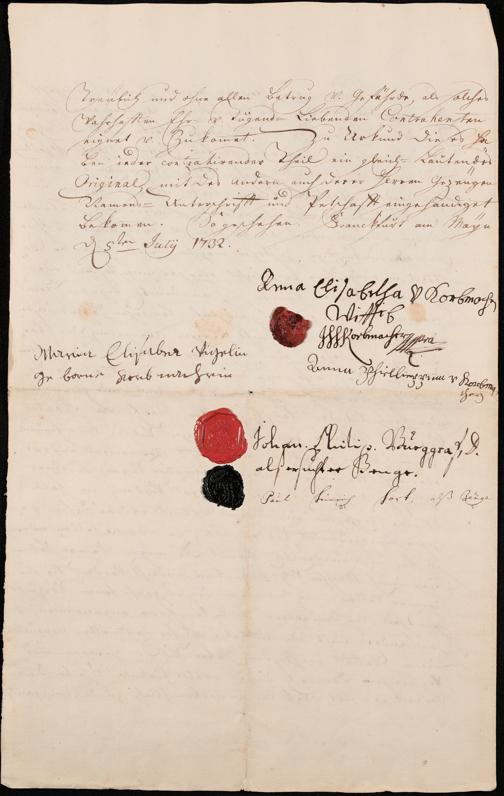 Treulich und ohne allen Betrug v. Gefährde, als solches
Wahrhafften Ehr v. Tugend= Liebenden Contrahenten
eignet v. Zukomt. Zu Urkund dieses ha
ben jeder contrahirender Theil ein gleich= Lautendes
Original, mit des andern auch derer Herren Gezeugen
Namens= Unterschrifft und Petschafft eingehändiget
bekomen. So geschehen. Franckfurt am Mayn
d 5ten July 1732.
Anna Elisabetha V Korbmacher
Wittib
Korbmacher
Maria Elisabeta
ge borne
Anna v Korbma
Johan. Philip. Burggraf, D.
alß ersuchter Zeuge.
Paul Hinrich alß Zeuge